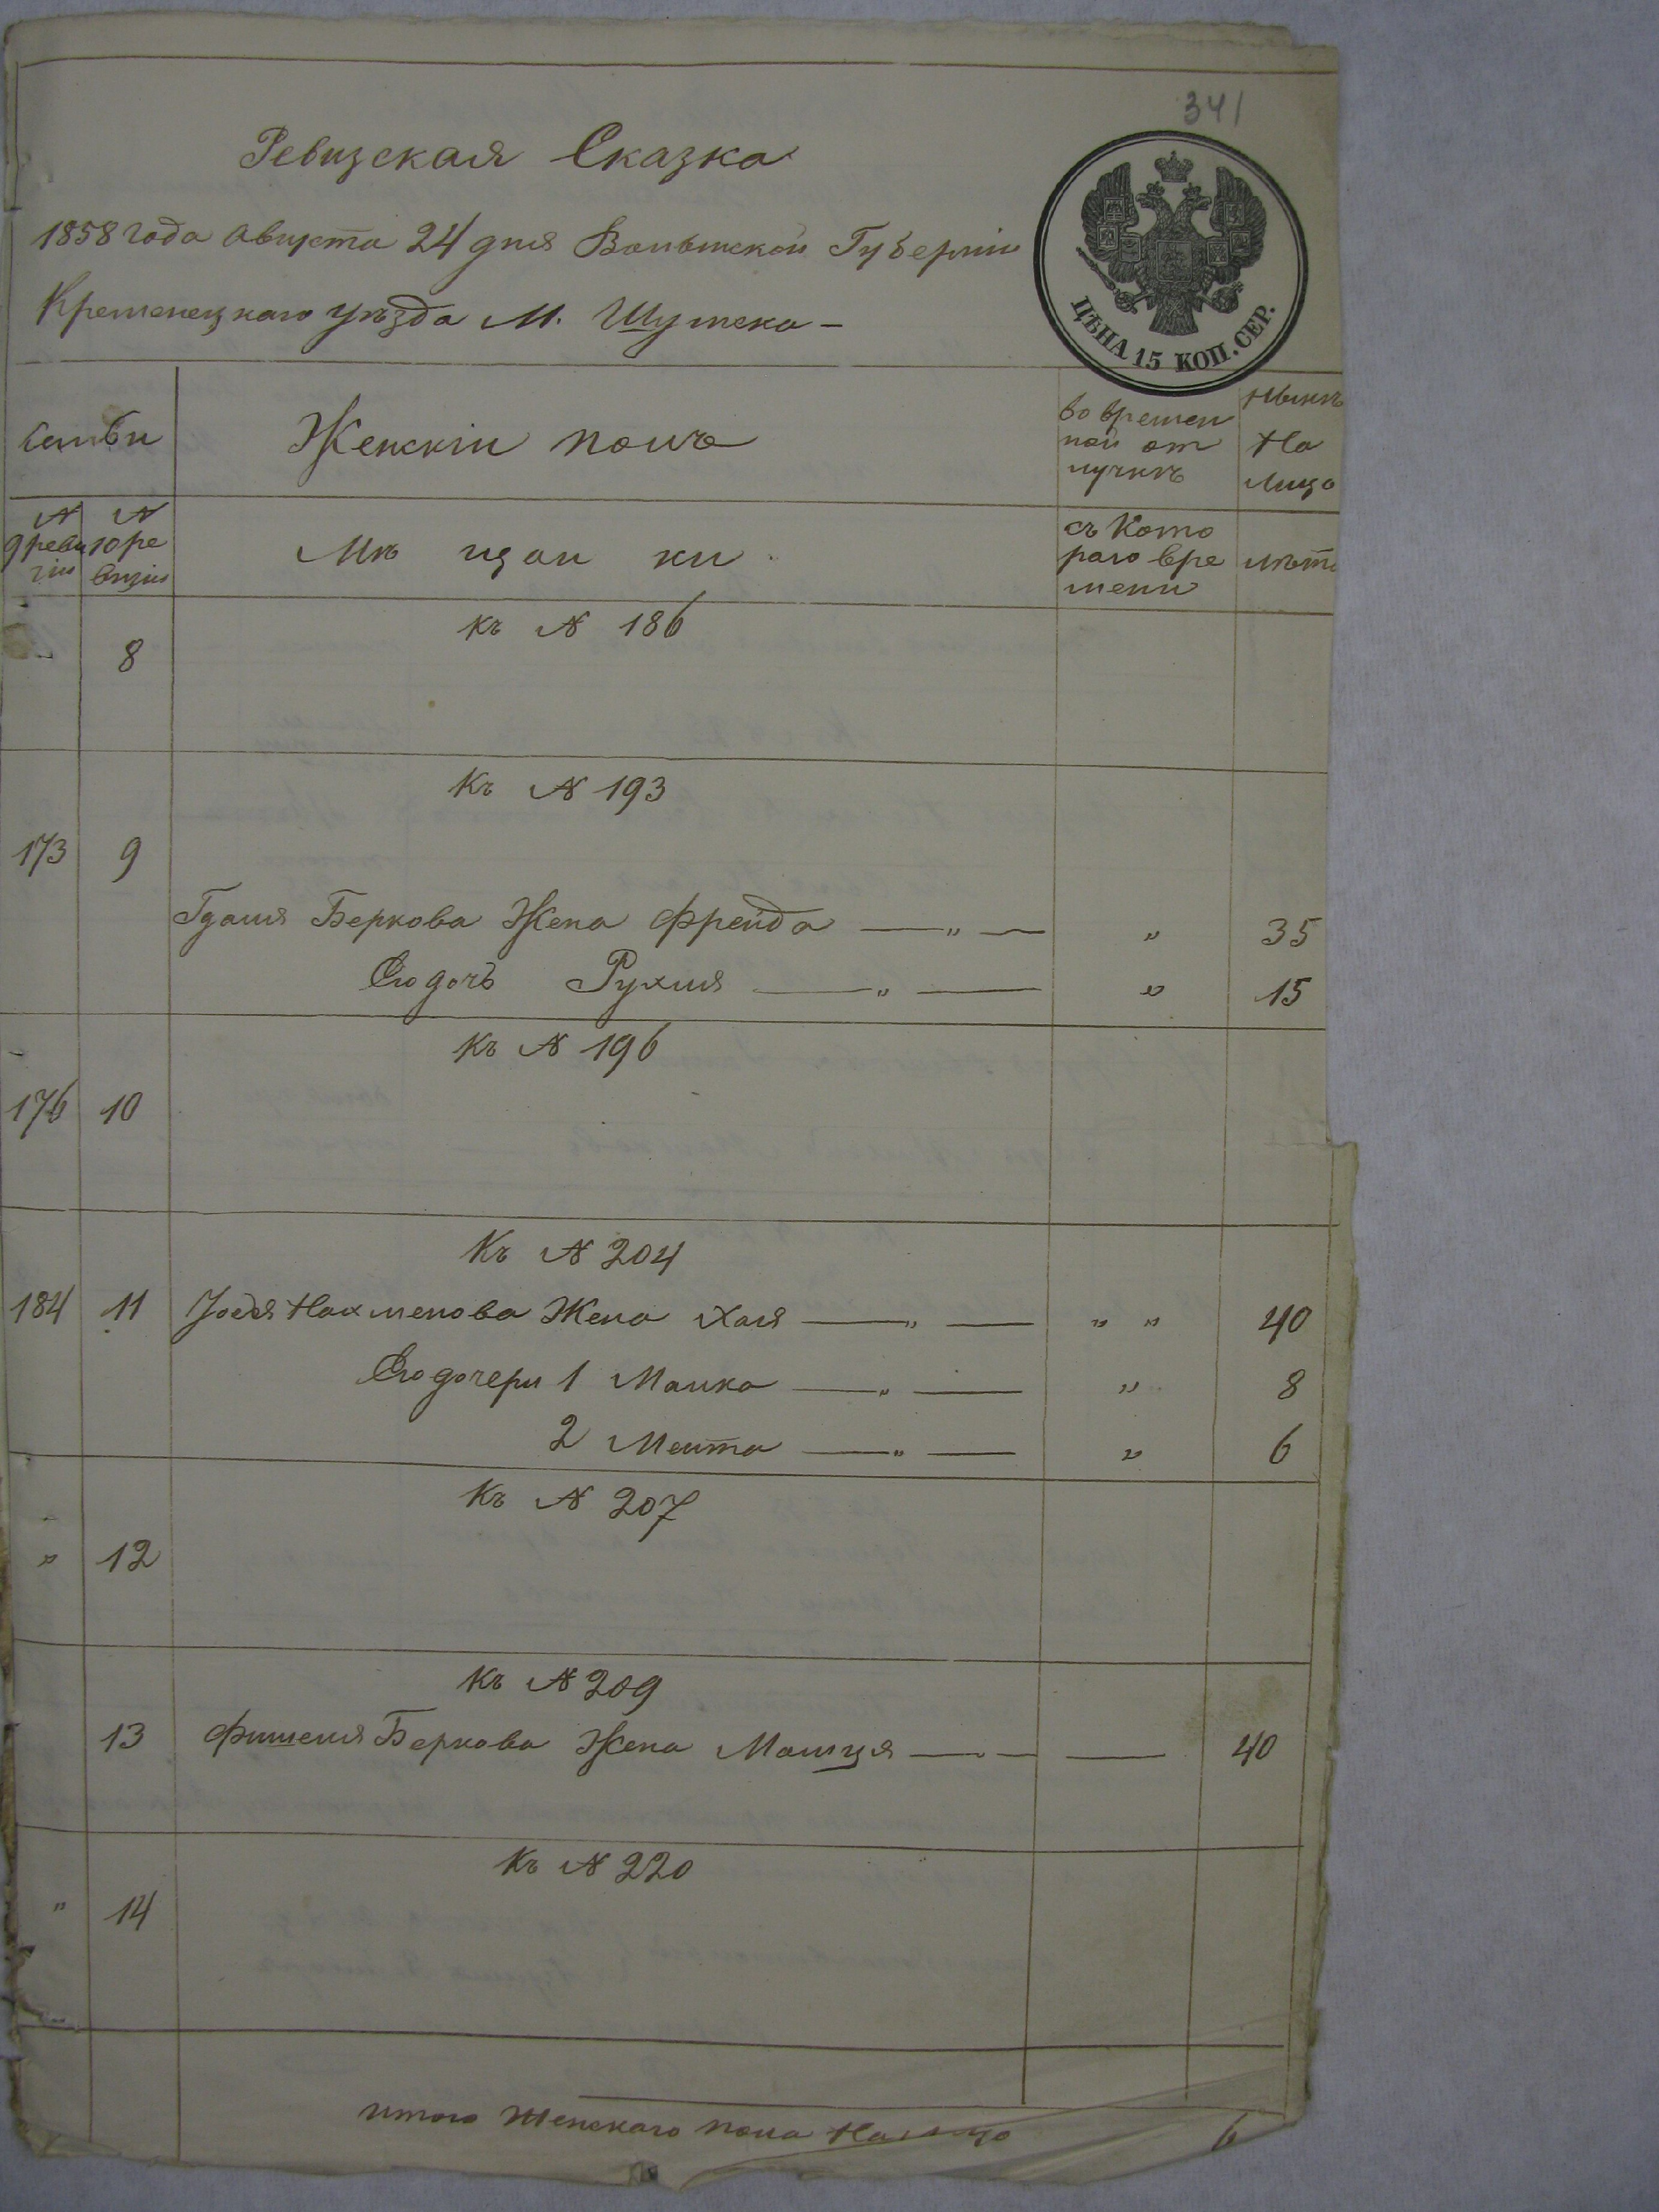 341
Ревизская Сказка
1858 года августа 24 дня Волынской Губернiи
Кременецкаго уѣзда М. Шумска -
ЦѢНА 15 КОП. СЕР.
Семьи
Женскiй полъ
во времен
ной от
лучкѣ
Нынѣ
На
лицо
№ 9 ревизiи
№ 10 ревизiи
Мѣ щан ки
съ Кото
раго вре
мени
лѣтъ
Къ № 186
8
Къ № 193
173 9
Гдаля Беркова Жена Фрейда —„— „ 35
Его дочь Рухля —„— „ 15
Къ № 196
176 10
Къ № 204
184 11 Нахменова Жена Хая —„— „ „ 40
Его дочери 1 Малка —„— „ 8
2 Мейта —„— „ 6
Къ № 207
„ 12
Къ № 209
13 Фишеля Беркова Жена — — 40
Къ № 220
„ 14
итого женскаго пола На лицо 6